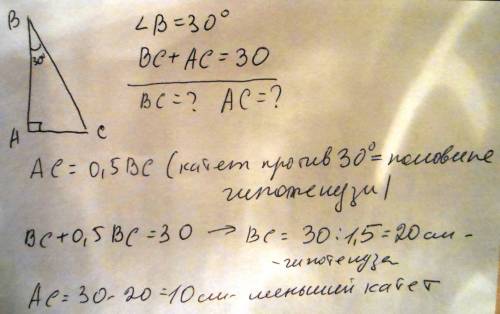 B
30°
A
C
∠B = 30°
BC + AC = 30
BC = ? AC = ?
AC = 0,5 BC (катет против 30° = половине
гипотенузи)
BC + 0,5 BC = 30 → BC = 30 : 1,5 = 20 см -
- гипотенуза
AC = 30 - 20 = 10 см - меньший катет